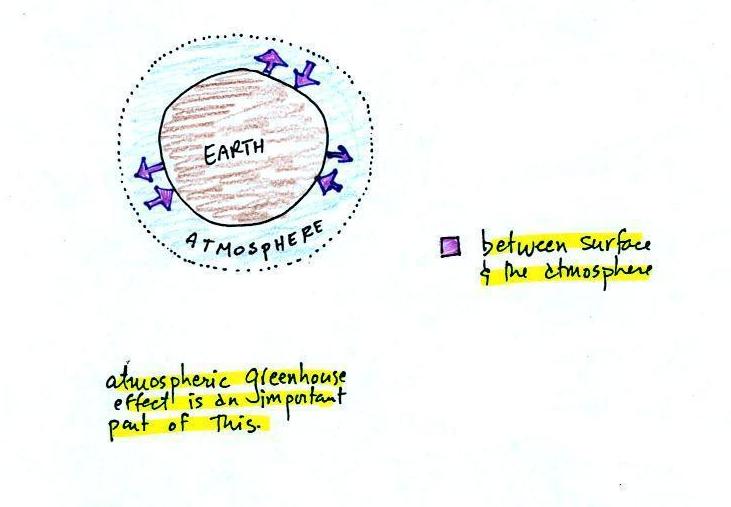 EARTH
ATMOSPHERE
between surface
& the atmosphere
atmospheric greenhouse
effect is an important
part of this.